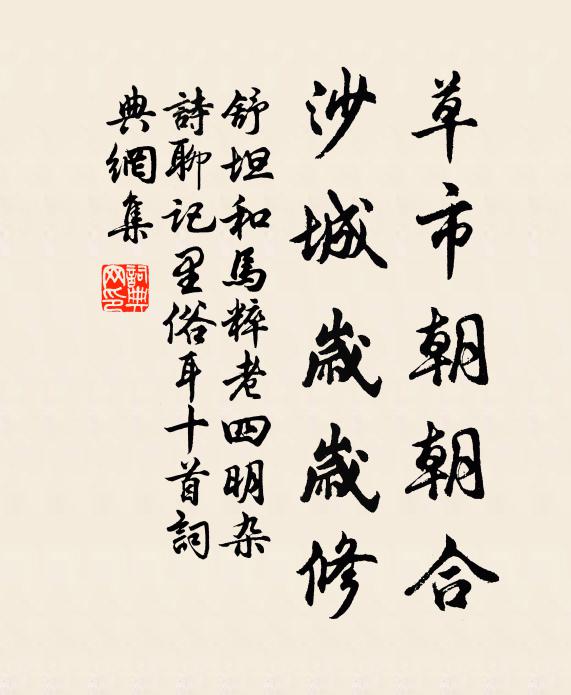 草市朝朝合
沙城歲歲修
舒坦和馬粹老四明杂
詩聊記里俗耳十首詞
典網集
詞典网印